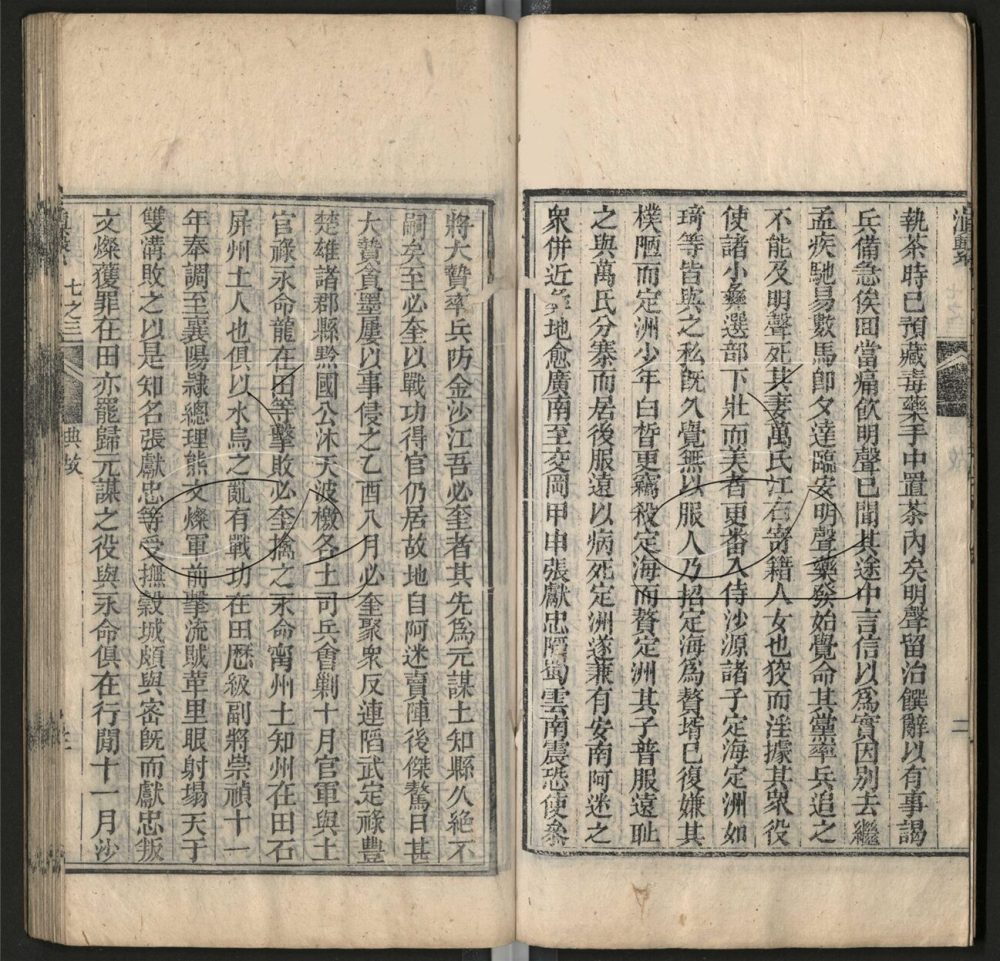 滇繫
二
執茶時已預藏毒藥手中置茶內矣明聲留治饌辭以有事謁
兵備急俟回當痛飲明聲已聞其途中言信以爲實因別去繼
孟疾馳易數馬卽夕達臨安明聲藥發始覺命其黨率兵追之
不能及明聲死其妻萬氏江右寄籍人女也狡而淫據其衆役
使諸小彝選部下壯而美者更番入侍沙源諸子定海定洲如
琦等皆與之私旣久覺無以服人乃招定海爲贅壻已復嫌其
樸陋而定洲少年白晳更竊役定海而贅定洲其子普服遠耻
之與萬氏分寨而居後服遠以病死定洲遂兼有安南阿迷之
衆併近 地愈廣南至交岡甲申張獻忠陷蜀雲南震恐使叅
將大贄率兵防金沙江吾必奎者其先爲元謀土知縣久絶不
嗣矣至必奎以戰功得官仍居故地自阿迷賣陣後傑驁日甚
大贄貪墨屢以事侵之乙酉八月必奎聚衆反連陷武定祿豐
楚雄諸郡縣黔國公沐天波檄各土司兵會剿十月官軍與土
官祿永命龍在田等擊敗必奎擒之永命甯州土知州在田石
屏州土人也俱以水烏之亂有戰功在田歴級副將崇禎十一
年奉調至襄陽隷總理熊文燦軍前擊流賊革里眼射塌天于
雙溝敗之以是知名張獻忠等受撫穀城頗與密旣而獻忠叛
文燦獲罪在田亦罷歸元謀之役與永命俱在行閒十一月沙
滇繫 七之三 典故